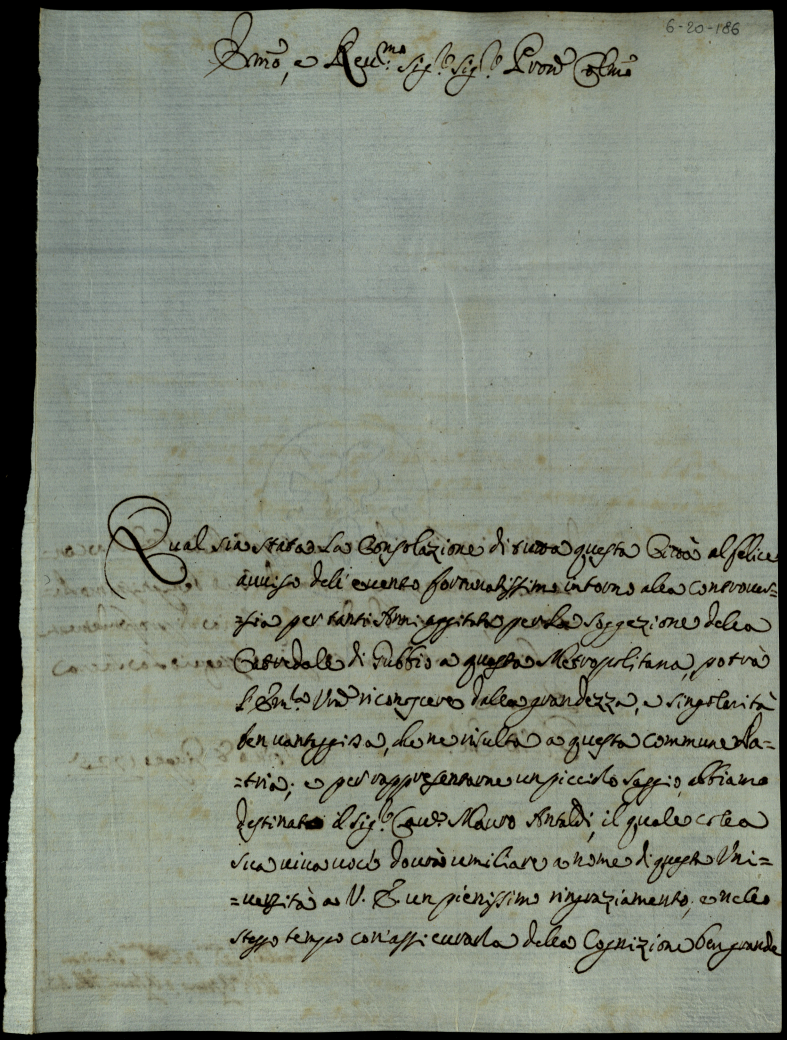 6-20-186
Emo, e Reu.mo Sig.r Sig.r Pron Colmo
Qual sia stata la Consolazione di tutta questa Città al felice
auuiso dell'euento fortunatissimo intorno alla controuer=
=sia per tanti Anni agitata per la Soggezione della
Catredale di Gubbio a questa Metropolitana, potrà
l'Em.za Vra riconoscere dalla grandezza, e singolarità
ben uantaggiosa, che ne risulta a questa commune Pa=
=tria; e per rappresentarne un picciolo saggio, abbiamo
destinato il Sig.r Cau.r Mauro Antaldi, il quale colla
sua uiua uoce dourà umiliare a nome di questa Vni=
=uersità a V. E. un pienissimo ringraziamento, e nello
stesso tempo con'assicurarla della Cognizione ben grande